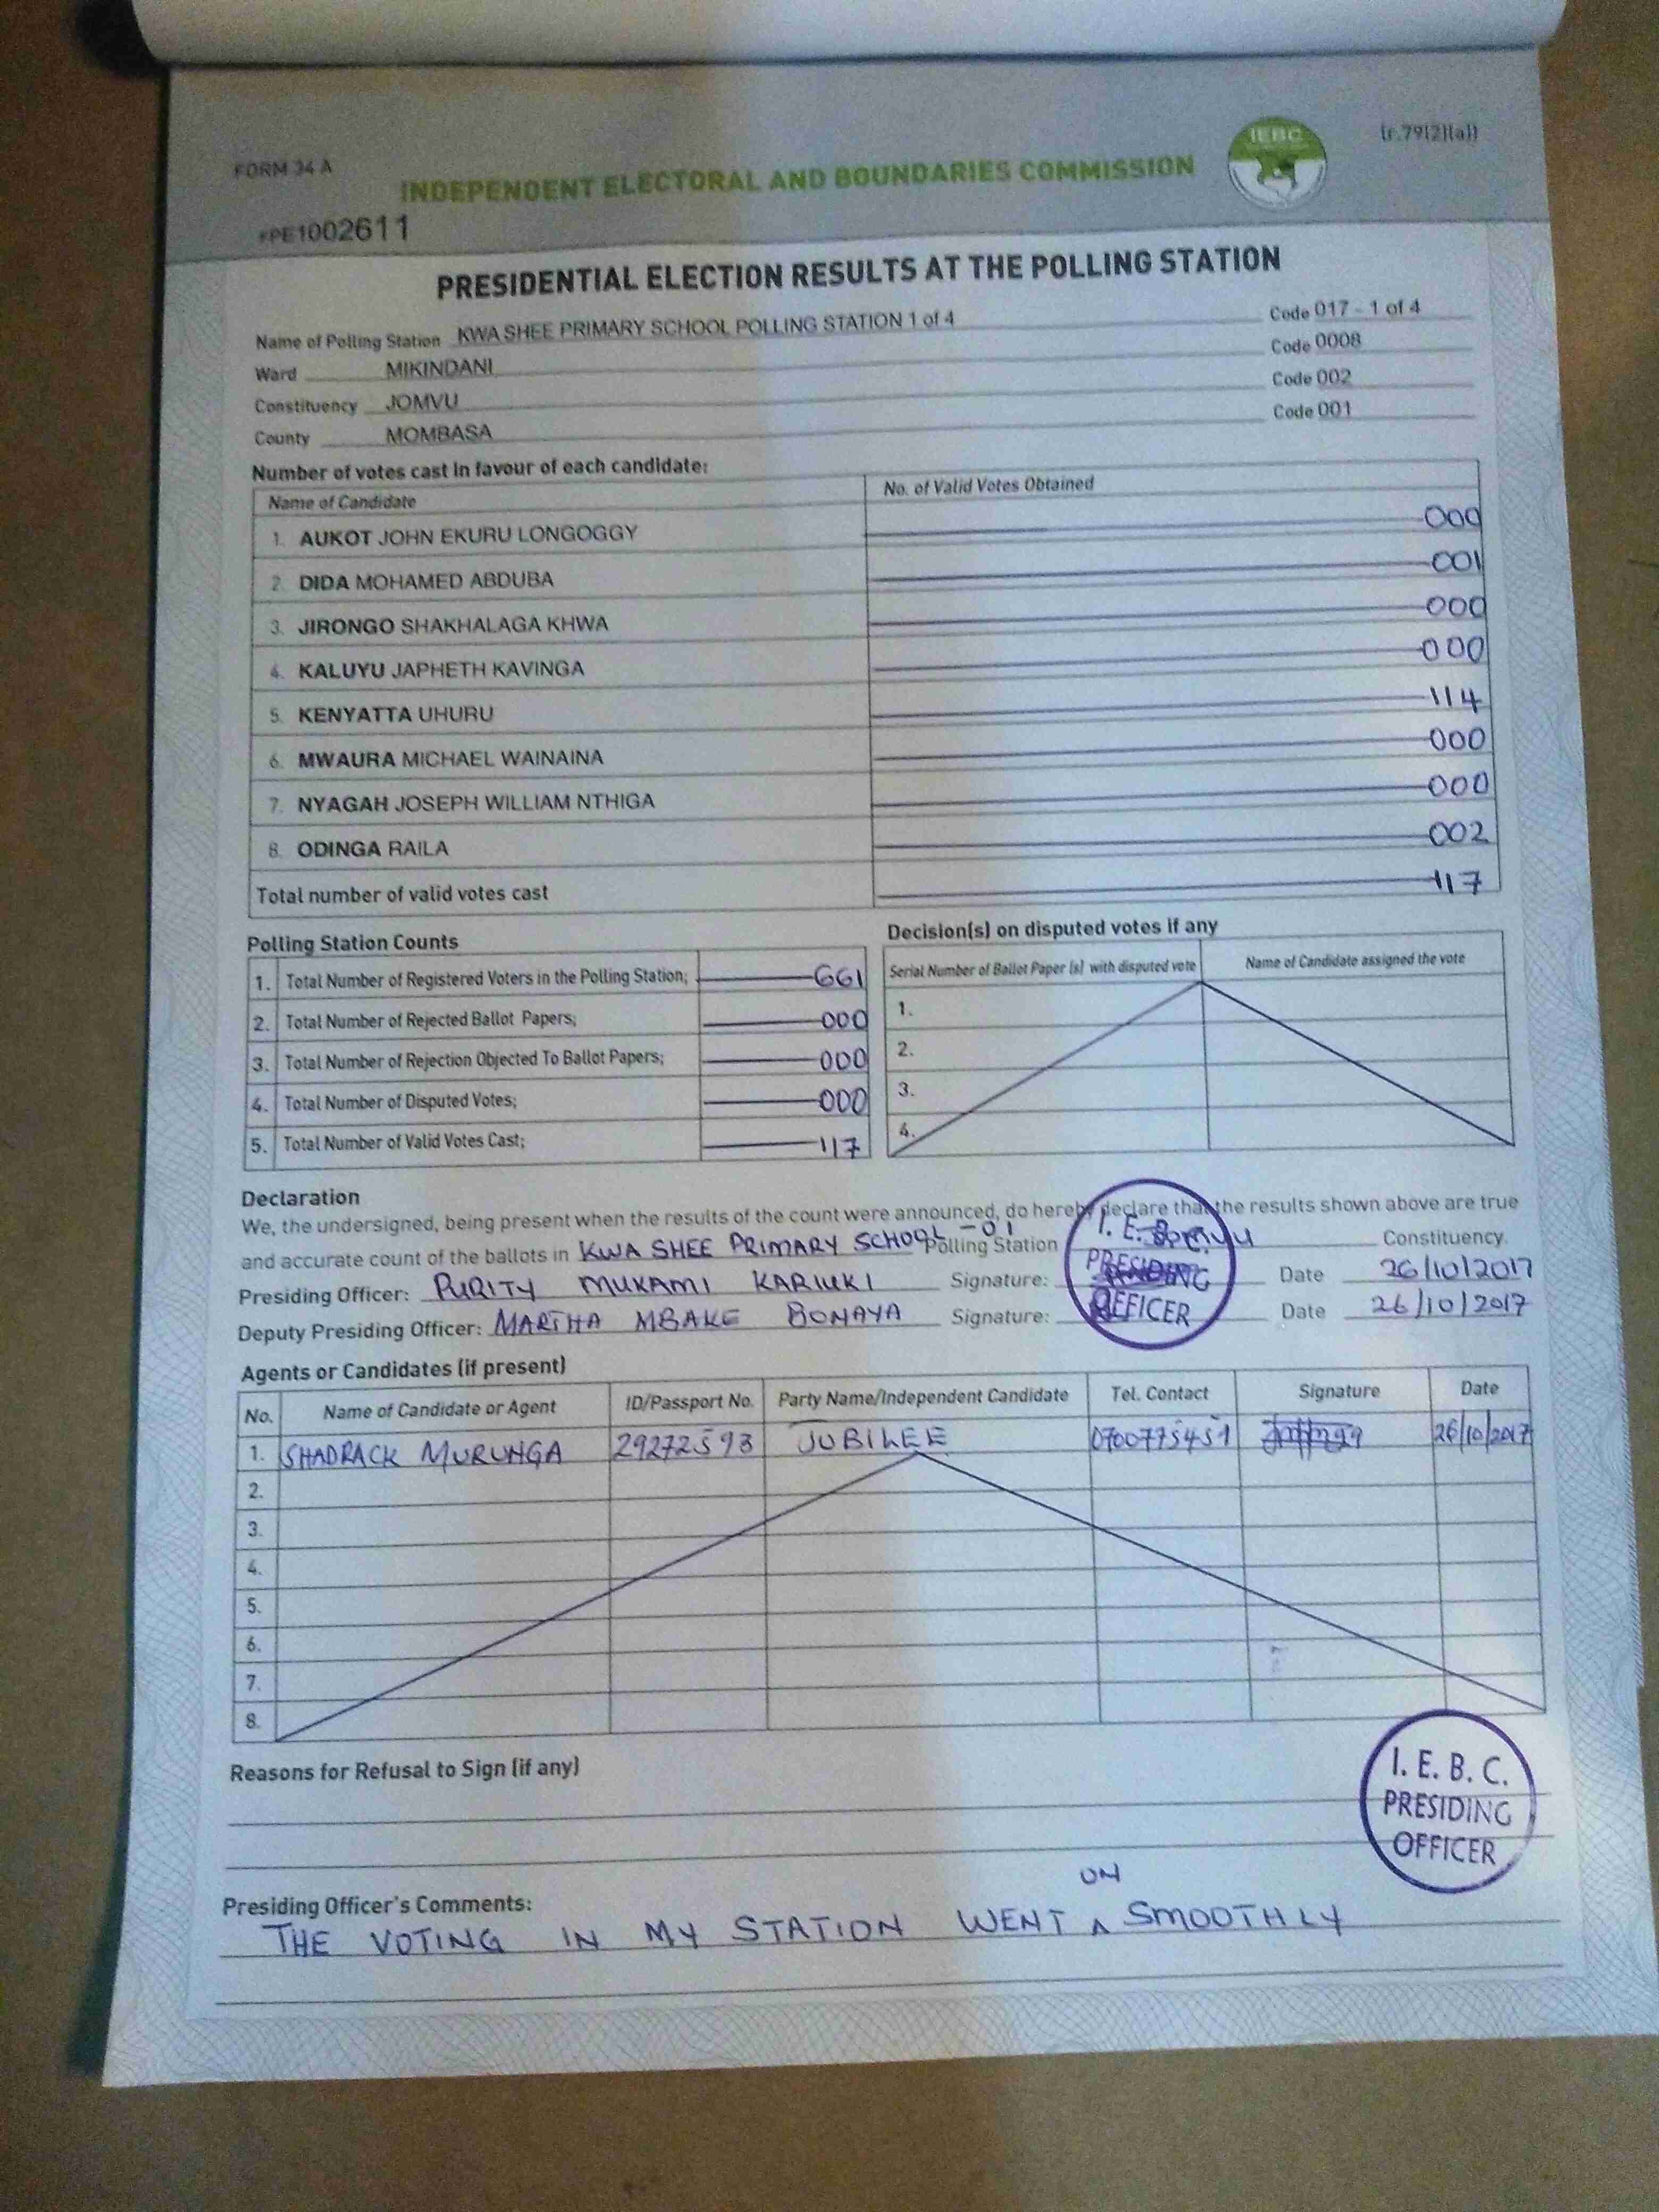 FORM 34 A
INDEPENDENT ELECTORAL AND BOUNDARIES COMMISSION
IEBC
(r.79(2)(a))
PE1002611
PRESIDENTIAL ELECTION RESULTS AT THE POLLING STATION
Name of Polling Station KWA SHEE PRIMARY SCHOOL POLLING STATION 1 of 4 Code 017 - 1 of 4
Ward MIKINDANI Code 0008
Constituency JOMVU Code 002
County MOMBASA Code 001
Number of votes cast in favour of each candidate:
Name of Candidate No. of Valid Votes Obtained
1. AUKOT JOHN EKURU LONGOGGY 000
2. DIDA MOHAMED ABDUBA 001
3. JIRONGO SHAKHALAGA KHWA 000
4. KALUYU JAPHETH KAVINGA 000
5. KENYATTA UHURU 114
6. MWAURA MICHAEL WAINAINA 000
7. NYAGAH JOSEPH WILLIAM NTHIGA 000
8. ODINGA RAILA 002
Total number of valid votes cast 117
Polling Station Counts
1. Total Number of Registered Voters in the Polling Station; 661
2. Total Number of Rejected Ballot Papers; 000
3. Total Number of Rejection Objected To Ballot Papers; 000
4. Total Number of Disputed Votes; 000
5. Total Number of Valid Votes Cast; 117
Decision(s) on disputed votes if any
Serial Number of Ballot Paper (s) with disputed vote Name of Candidate assigned the vote
1.
2.
3.
4.
Declaration
We, the undersigned, being present when the results of the count were announced, do hereby declare that the results shown above are true
and accurate count of the ballots in KWA SHEE PRIMARY SCHOOL - 01 Polling Station Constituency.
Presiding Officer: PURITY MUKAMI KARIUKI Signature: Date 26/10/2017
Deputy Presiding Officer: MARTHA MBAKE BONAYA Signature: Date 26/10/2017
PRESIDING
OFFICER
Agents or Candidates (if present)
No. Name of Candidate or Agent ID/Passport No. Party Name/Independent Candidate Tel. Contact Signature Date
1. SHADRACK MURUNGA 29272593 JUBILEE 0700775451 26/10/2017
2.
3.
4.
5.
6.
7.
8.
Reasons for Refusal to Sign (if any)
I. E. B. C.
PRESIDING
OFFICER
Presiding Officer's Comments:
THE VOTING IN MY STATION WENT ON SMOOTHLY